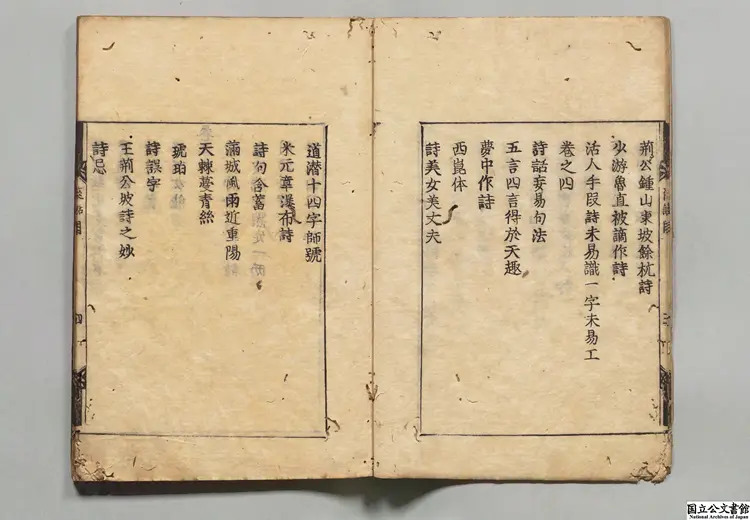 荊公鍾山東坡餘杭詩
少游魯直被謫作詩
活人手段詩未易識一字未易工
卷之四
詩話妄易句法
五言四言得於天趣
夢中作詩
西崑体
詩美女美丈夫
道潜十四字師號
米元章瀑布詩
詩句含蓄
滿城風雨近重陽
天棘蔓青絲
琥珀
詩誤字
王荊公坡詩之妙
詩忌
四
国立公文書館
National Archives of Japan